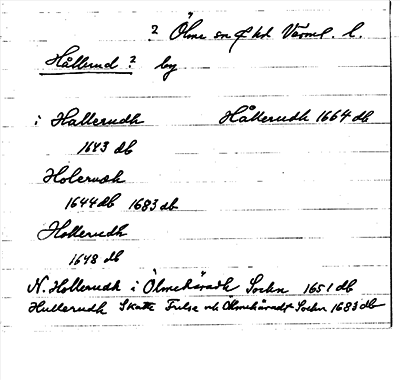 ? Ölme sn o hd Värml. l.
Hållerud ? by
i Hallerudh Hållerudh 1664 db
1643 db
Holerudh
1644 db 1683 db
Hollerudh
1648 db
N. Hollerudh i Ölmehäradh Sochn 1651 db
Hullerudh Skatte Frelse och Ölmehäradz Sochn 1683 db